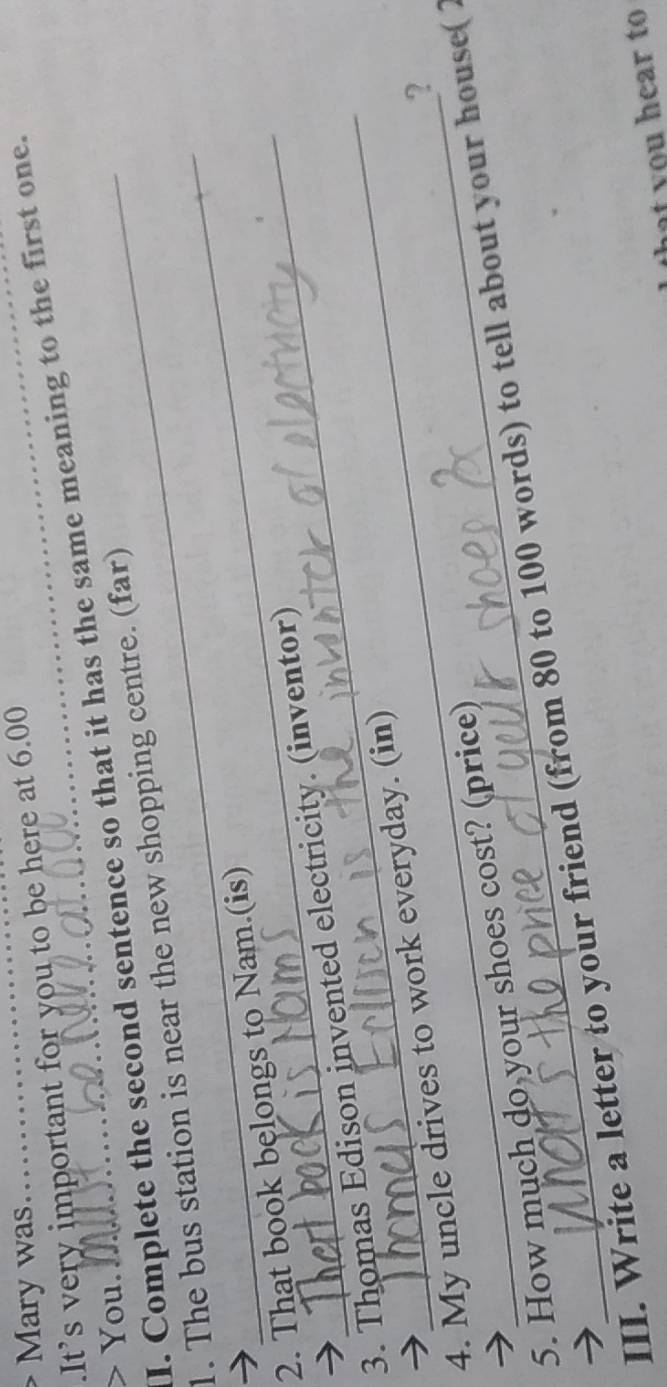 > Mary was
.It's very important for you to be here at 6.00
> You. must be here at 6.00
II. Complete the second sentence so that it has the same meaning to the first one.
1. The bus station is near the new shopping centre. (far)
→
2. That book belongs to Nam.(is)
→ That book is Nam's
3. Thomas Edison invented electricity. (inventor)
→ Thomas Edison is the inventor of electricity
4. My uncle drives to work everyday. (in)
→ ?
5. How much do your shoes cost? (price)
→ What's the price of your shoes ?
III. Write a letter to your friend (from 80 to 100 words) to tell about your house(
that you hear to